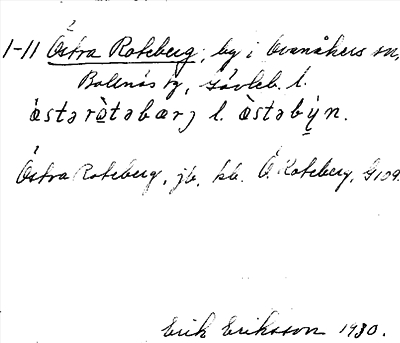 1-11 Östra Roteberg, by i Ovanåkers sn,
Bollnäs tg, Gävleb. l.
östa ròtəbærj l. òstəbýn.
Östra Roteberg, jb, kb. Ö. Roteberg, G109.
Erik Eriksson 1930.